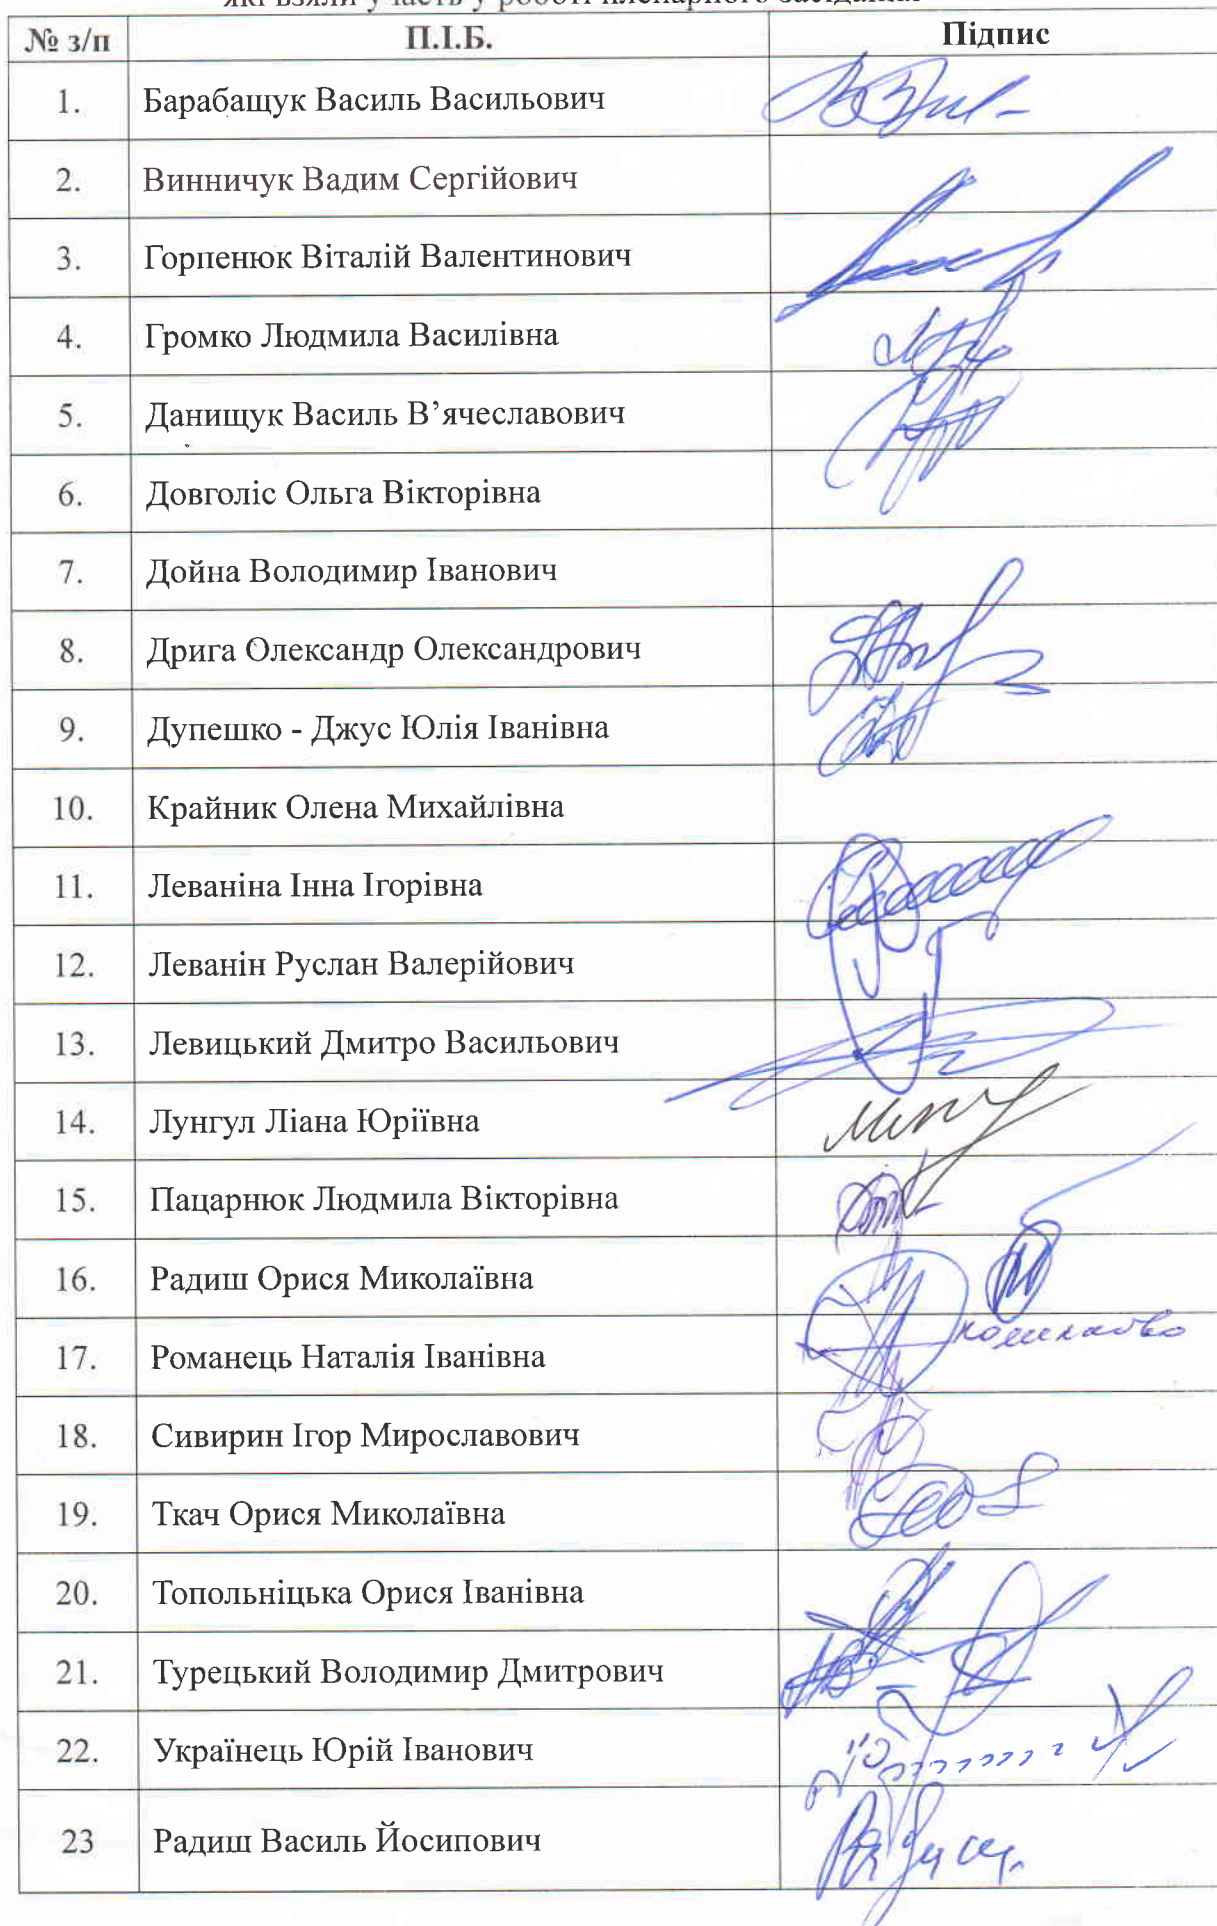 які взяли участь у роботі пленарного засідання
№ з/п П.І.Б. Підпис
1. Барабащук Василь Васильович
2. Винничук Вадим Сергійович
3. Горпенюк Віталій Валентинович
4. Громко Людмила Василівна
5. Данищук Василь В’ячеславович
6. Довголіс Ольга Вікторівна
7. Дойна Володимир Іванович
8. Дрига Олександр Олександрович
9. Дупешко - Джус Юлія Іванівна
10. Крайник Олена Михайлівна
11. Леваніна Інна Ігорівна
12. Леванін Руслан Валерійович
13. Левицький Дмитро Васильович
14. Лунгул Ліана Юріївна
15. Пацарнюк Людмила Вікторівна
16. Радиш Орися Миколаївна
17. Романець Наталія Іванівна
18. Сивирин Ігор Мирославович
19. Ткач Орися Миколаївна
20. Топольніцька Орися Іванівна
21. Турецький Володимир Дмитрович
22. Українець Юрій Іванович
23 Радиш Василь Йосипович